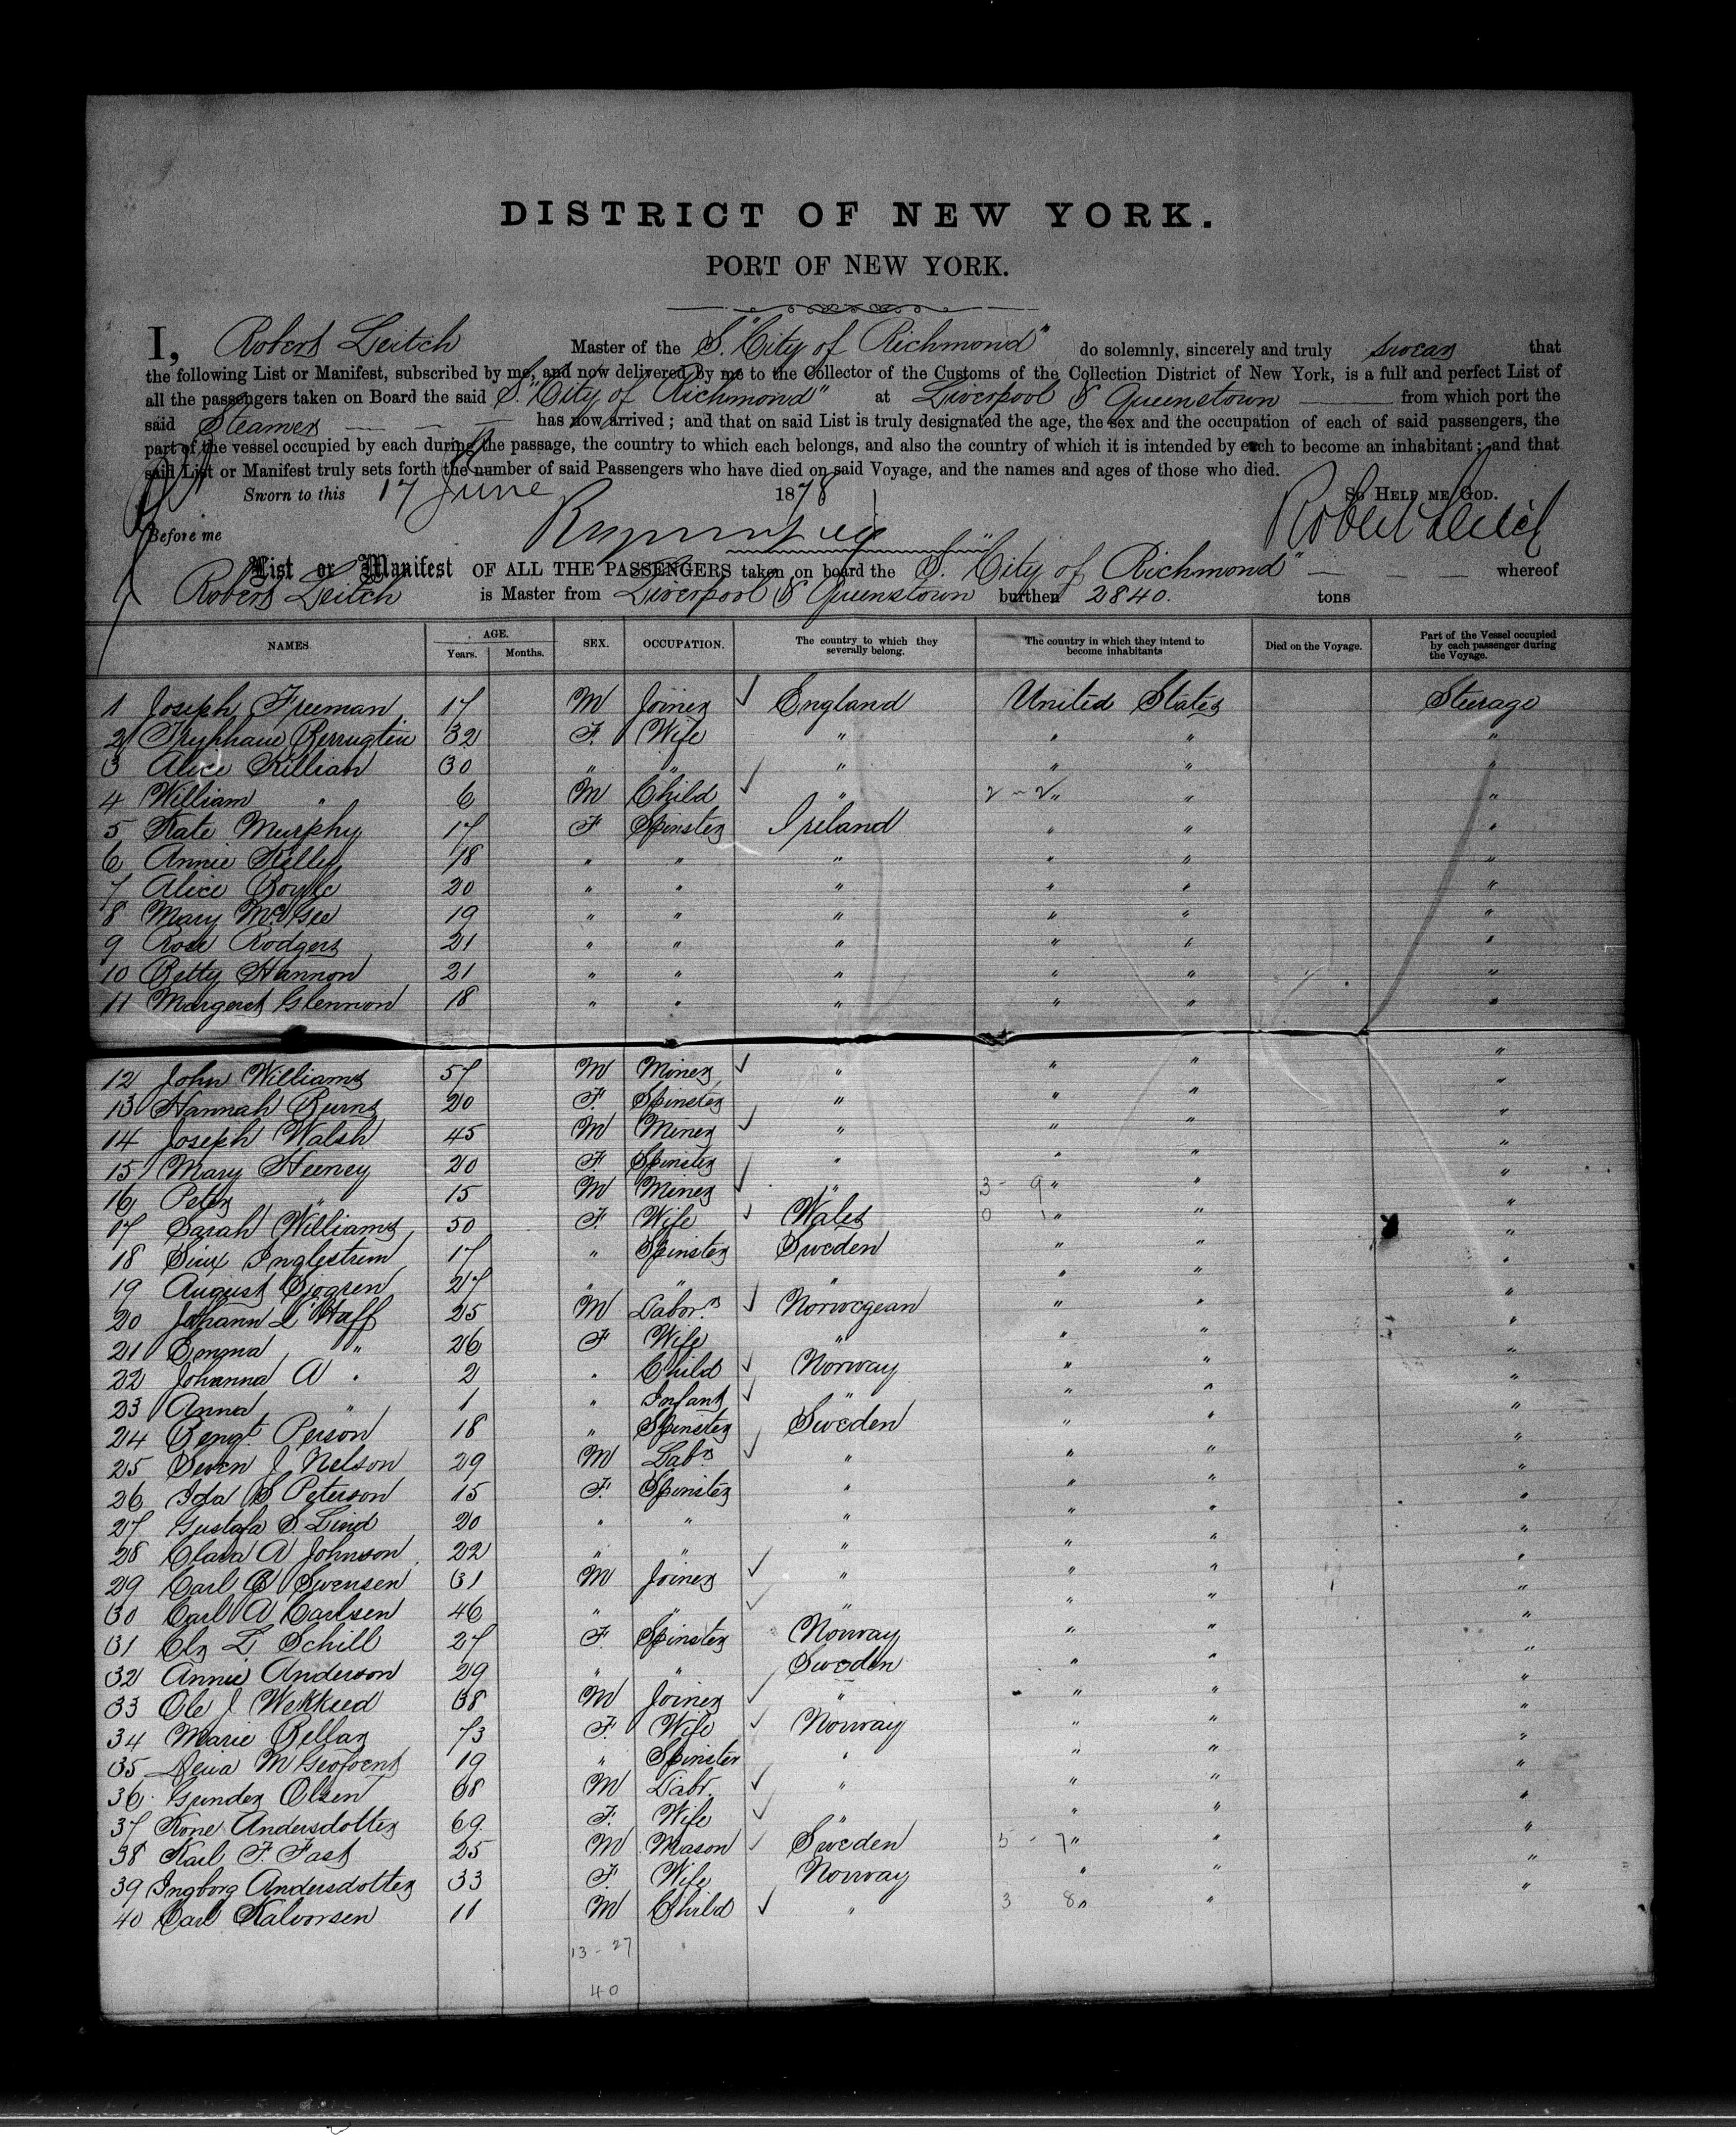 DISTRICT OF NEW YORK.
PORT OF NEW YORK.
I, Robert Leitch Master of the S. "City of Richmond" do solemnly, sincerely and truly swear that
the following List or Manifest, subscribed by me, and now delivered by me to the Collector of the Customs of the Collection District of New York, is a full and perfect List of
all the passengers taken on Board the said S. "City of Richmond" at Liverpool & Queenstown from which port the
said Steamer has now arrived; and that on said List is truly designated the age, the sex and the occupation of each of said passengers, the
part of the vessel occupied by each during the passage, the country to which each belongs, and also the country of which it is intended by each to become an inhabitant; and that
said List or Manifest truly sets forth the number of said Passengers who have died on said Voyage, and the names and ages of those who died.
Sworn to this 17 June 1878 So Help me God.
Before me Robert Leitch
List or Manifest OF ALL THE PASSENGERS taken on board the S. "City of Richmond" whereof
Robert Leitch is Master from Liverpool & Queenstown burthen 2840. tons
NAMES. AGE. Years. Months. SEX. OCCUPATION. The country to which they severally belong. The country in which they intend to become inhabitants Died on the Voyage. Part of the Vessel occupied by each passenger during the Voyage.
1 Joseph Freeman 17 M Joiner England United States Steerage
2 32 F. Wife " " " "
3 Alice Killian 30 " " " " " "
4 William " 6 M Child " 2 - 2 " " "
5 Kate Murphy 17 F Spinster Ireland " " "
6 Annie Kelley 18 " " " " " "
7 Alice Boyle 20 " " " " " "
8 Mary McGee 19 " " " " " "
9 Rose Rodgers 21 " " " " " "
10 Betty Hannon 21 " " " " " "
11 Margaret Glennon 18 " " " " " "
12 John Williams 57 M Miner " " " "
13 Hannah Burns 20 F. Spinster " " " "
14 Joseph Walsh 45 M Miner " " " "
15 Mary Heeney 20 F. Spinster " " " "
16 Peter " 15 M Miner " 3 - 9 " " "
17 Sarah Williams 50 F. Wife Wales 0 1 " " "
18 Inglestrum 17 " Spinster Sweden " " "
19 August Sjogren 27 " " " " " "
20 Johann L Haff 25 M Labor.r Norwegean " " "
21 Emma " 26 F Wife " " " "
22 Johanna A " 2 " Child Norway " " "
23 Anna " 1 " Infant " " " "
24 Bengt Person 18 " Spinster Sweden " " "
25 Swen J. Nelson 29 M Labr " " " "
26 Ida S Peterson 15 F. Spinster " " " "
27 Gustafa S. Lind 20 " " " " " "
28 Clara A Johnson 22 " " " " " "
29 Carl B Swensen 31 M Joiner " " " "
30 Carl A Carlsen 46 " " " " " "
31 L Schill 27 F. Spinster Norway " " "
32 Annie Anderson 29 " " Sweden " " "
33 Ole J 38 M Joiner " " " "
34 Marie 73 F. Wife Norway " " "
35 M 19 " Spinster " " " "
36 Gunder Olsen 68 M Labr. " " " "
37 Kone Andersdotter 69 F. Wife " " " "
38 Karl F. Fast 25 M Mason Sweden 5 - 7 " " "
39 Ingborg Andersdotter 33 F. Wife Norway " " "
40 Carl Kalvorsen 11 M Child " 3 8 " " "
13 - 27
40